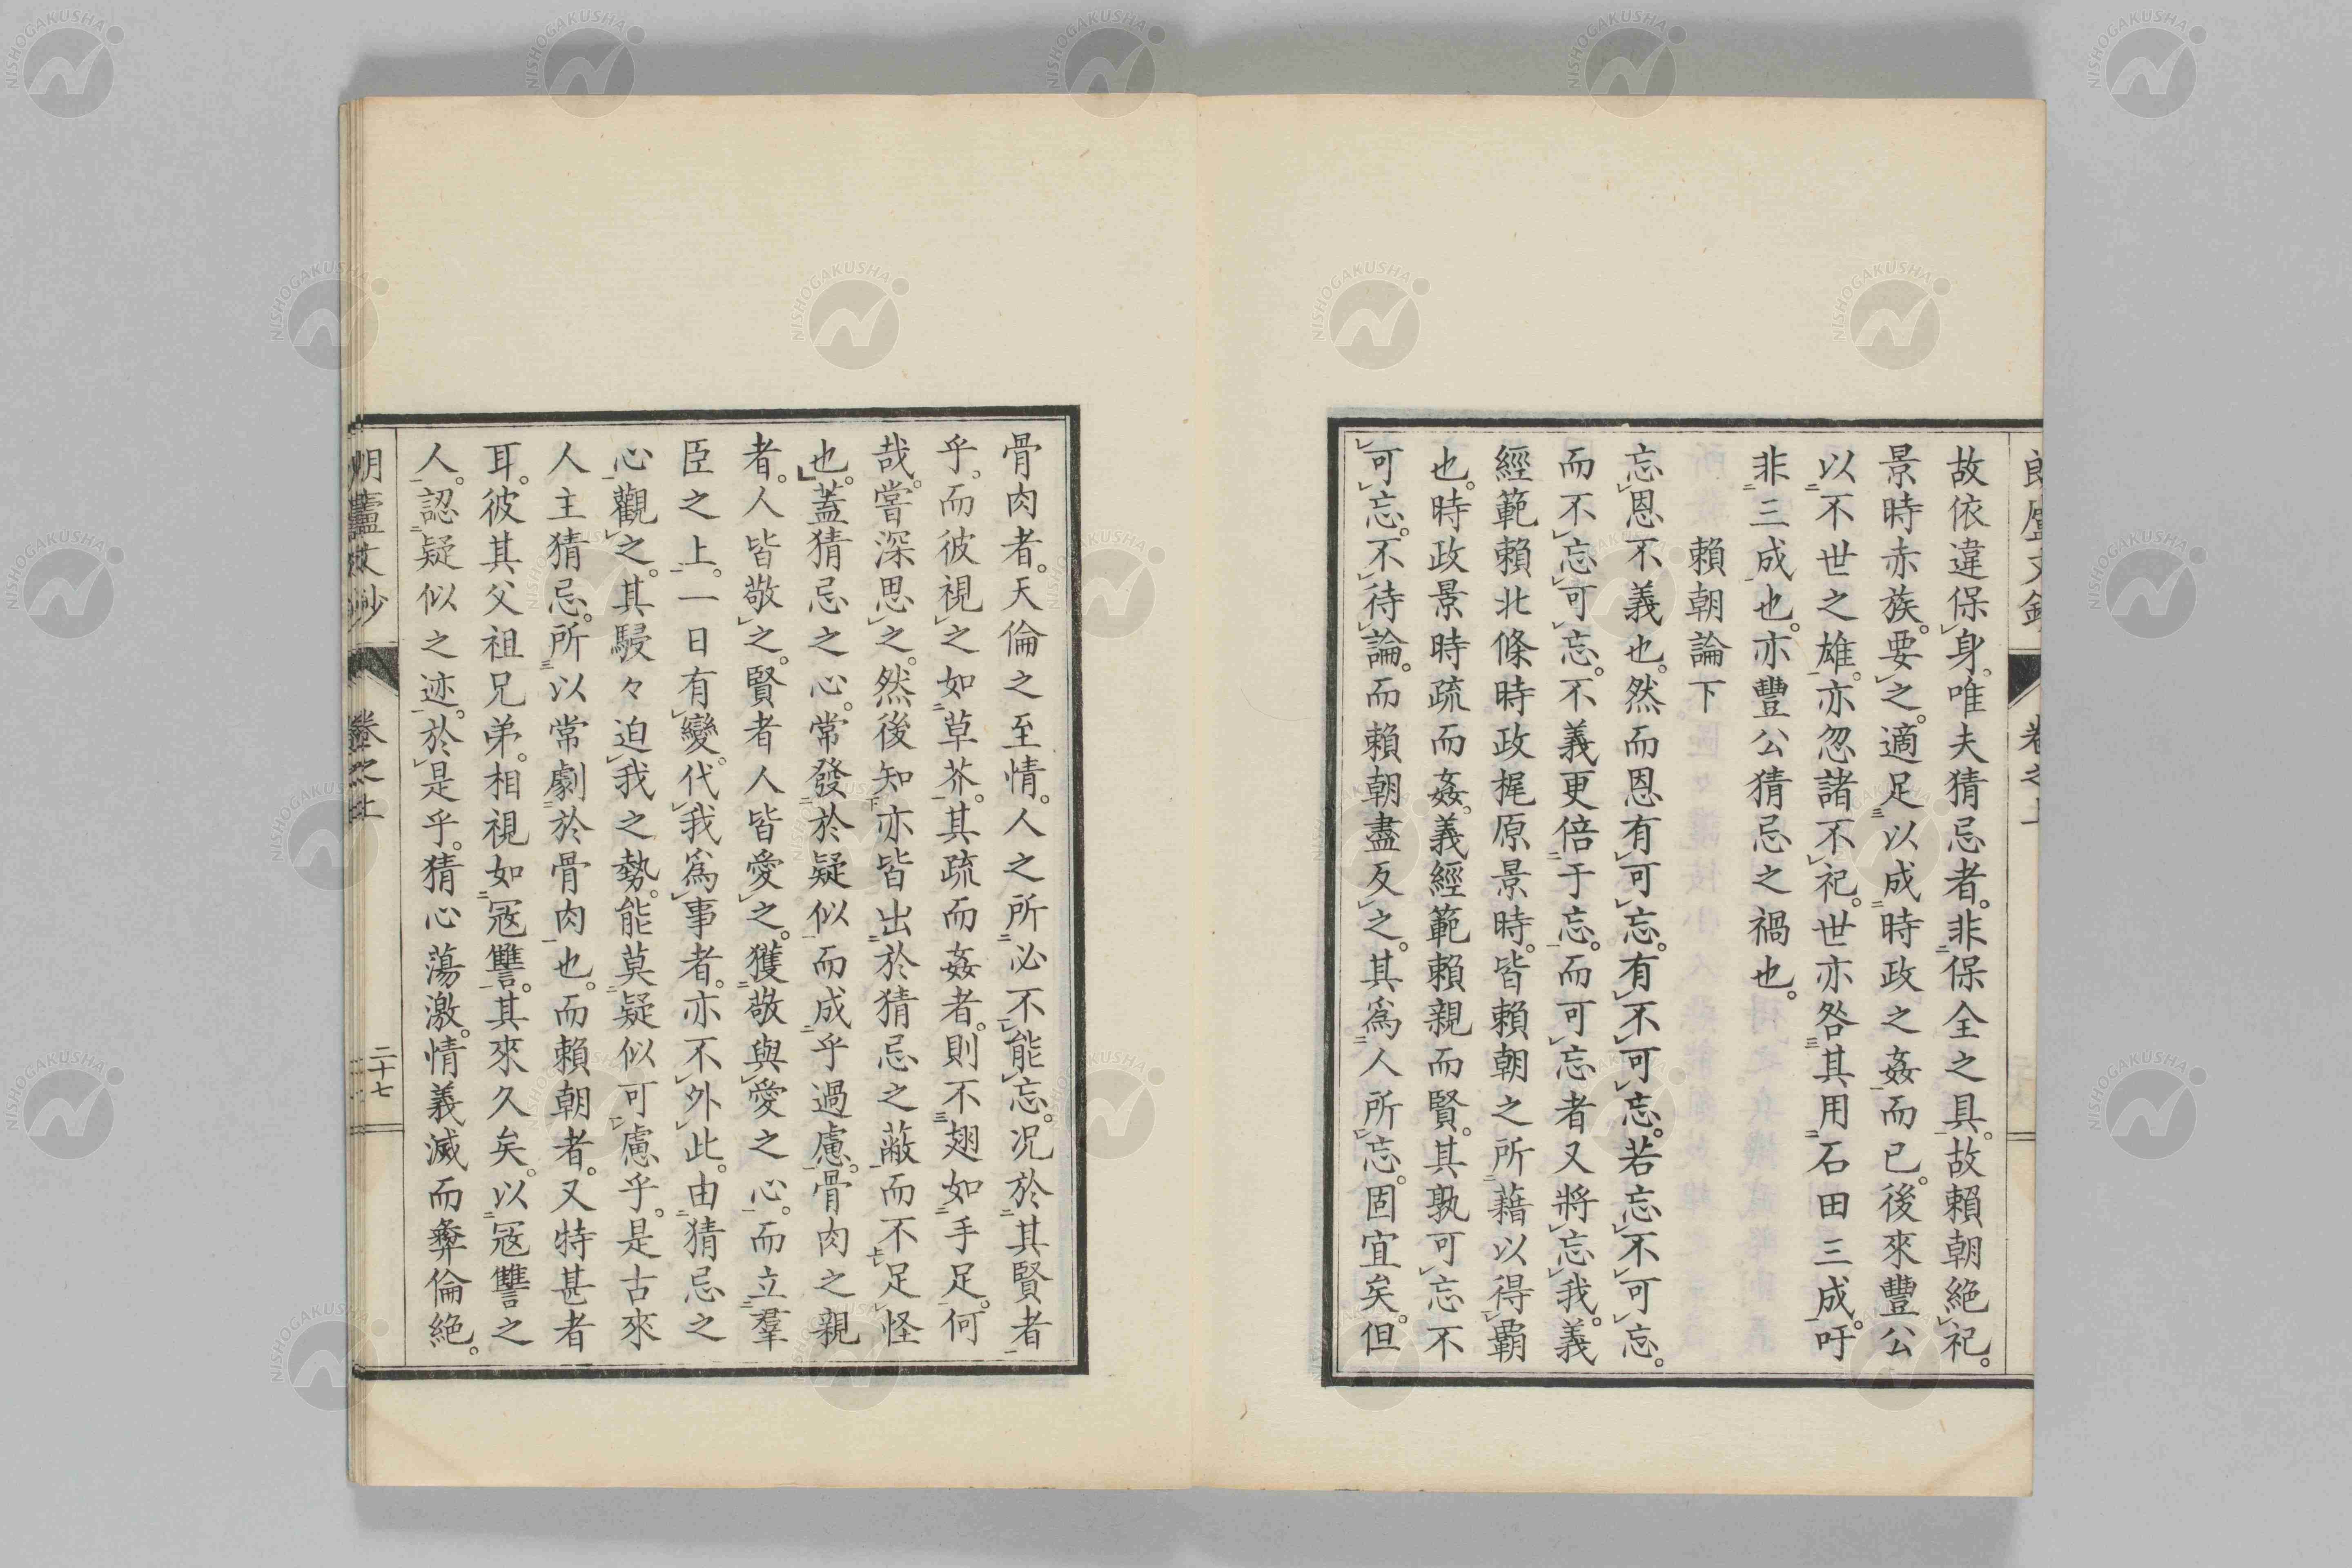 故依違保身。唯夫猜忌者。非保全之具。故賴朝絶祀。
景時赤族。要之。適足以成時政之姦而已。後來豐公
以不世之雄。亦忽諸不祀。世亦咎其用石田三成。吁
非三成也。亦豐公猜忌之禍也。
賴朝論下
忘恩不義也。然而恩有可忘。有不可忘。若忘不可忘。
而不忘可忘。不義更倍于忘。而可忘者又將忘我。義
經範賴北條時政梶原景時。皆賴朝之所藉以得覇
也。時政景時疏而姦。義經範賴親而賢。其孰可忘不
可忘。不待論。而賴朝盡反之。其爲人所忘。固宜矣。但
骨肉者。天倫之至情。人之所必不能忘。況於其賢者
乎。而彼視之如草芥。其疏而姦者。則不翅如手足。何
哉。嘗深思之。然後知亦皆出於猜忌之蔽而不足怪
也。蓋猜忌之心。常發於疑似而成乎過慮。骨肉之親
者。人皆敬之。賢者人皆愛之。獲敬與愛之心。而立羣
臣之上。一日有變。代我爲事者。亦不外此。由猜忌之
心觀之。其駸々迫我之勢。能莫疑似可慮乎。是古來
人主猜忌。所以常劇於骨肉也。而賴朝者。又特甚者
耳。彼其父祖兄弟。相視如冦讐。其來久矣。以冦讐之
人。認疑似之迹。於是乎。猜心蕩激。情義滅而彝倫絶。
朗廬文鈔 卷之上 二十七